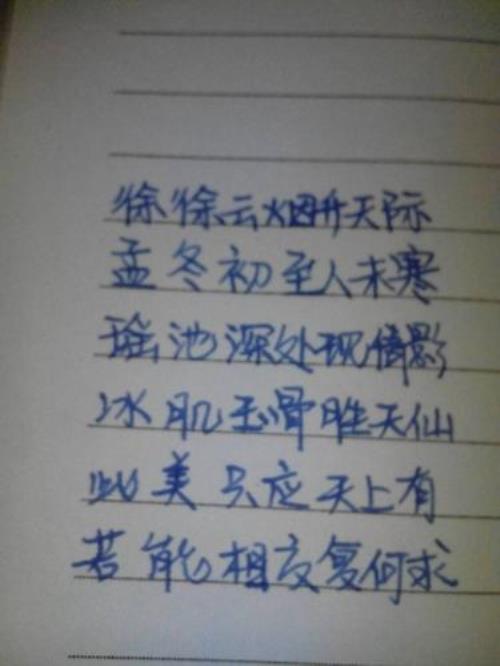 徐徐云烟升天际
孟冬初至人未寒
瑶池深处现倩影
冰肌玉骨胜天仙
此美只应天上有
若能相交复何求